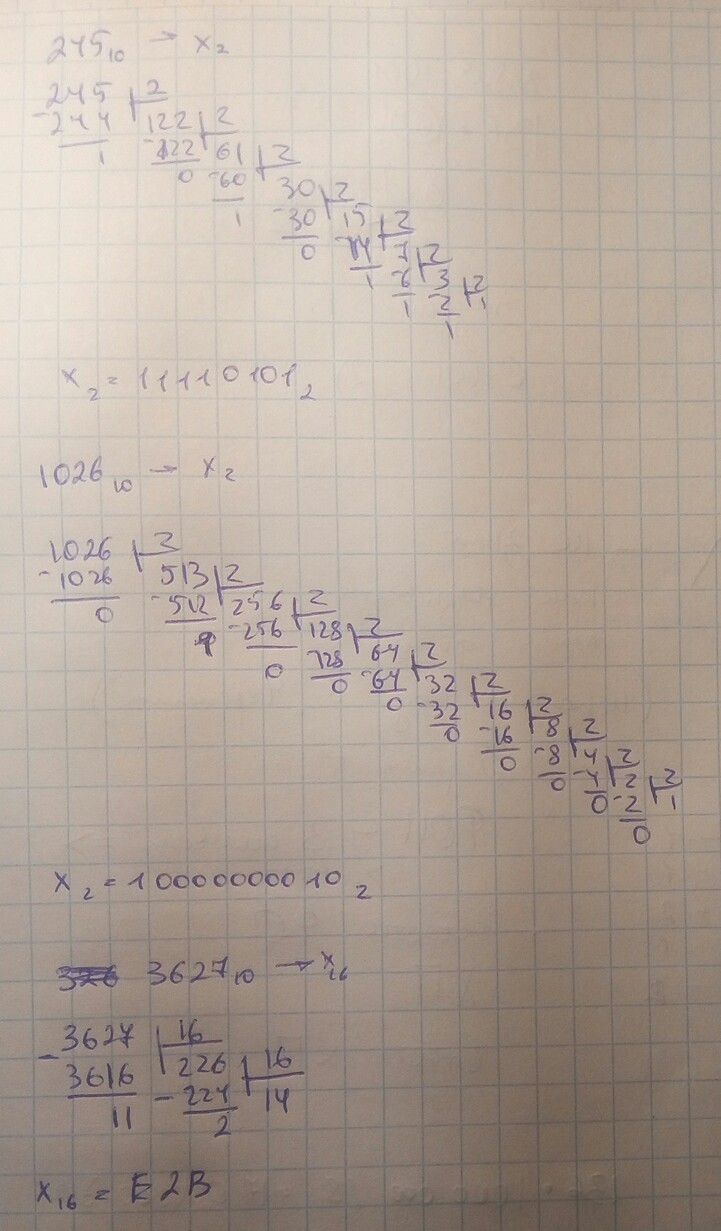 245₁₀ → x₂
245 2
-244 122 2
1 -122 61 2
0 -60 30 2
1 -30 15 2
0 -14 7 2
1 -6 3 2
1 -2 1
1
x₂ = 11110101₂
1026₁₀ → x₂
1026 2
-1026 513 2
0 -512 256 2
1 -256 128 2
0 -128 64 2
0 -64 32 2
0 -32 16 2
0 -16 8 2
0 -8 4 2
0 -4 2 2
0 -2 1
0
x₂ = 10000000010₂
3627₁₀ → x₁₆
-3627 16
3616 226 16
11 -224 14
2
x₁₆ = E2B